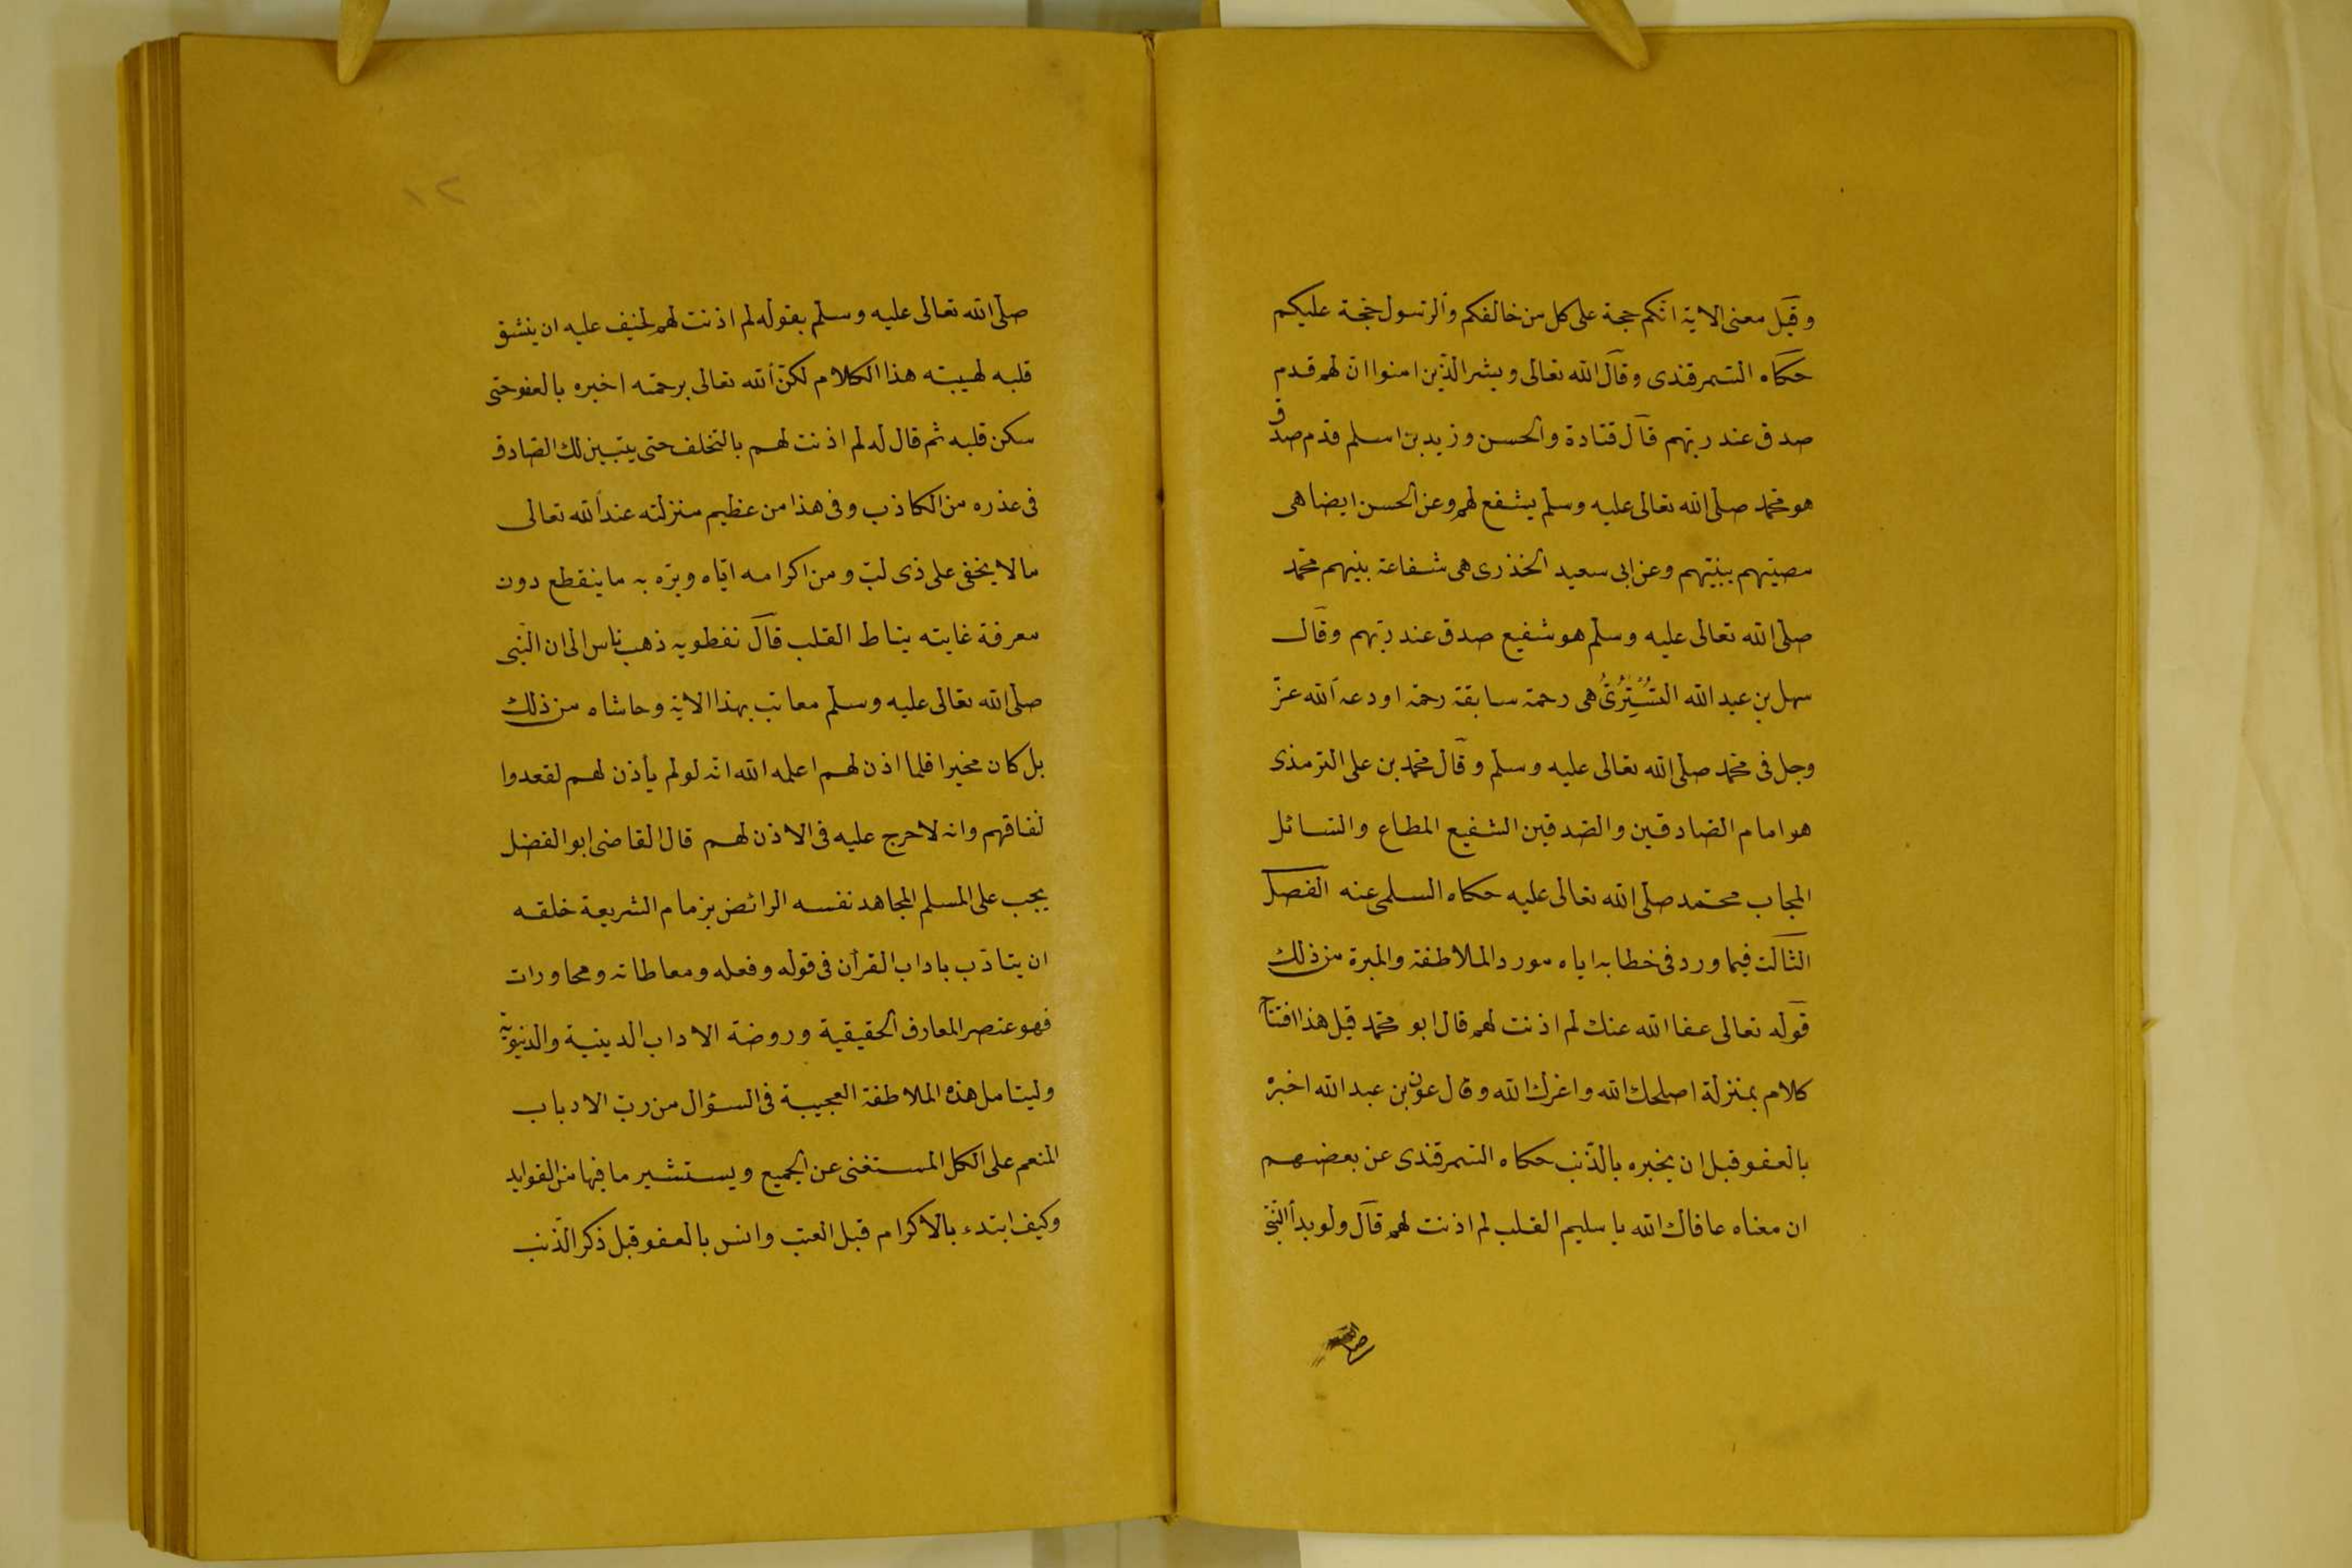 وقيل معنى الاية انكم حجة على كل من خالفكم والرسول حجة عليكم
حكاه السمرقندى وقال الله تعالى وبشر الذين امنوا ان لهم قدم
صدق عند ربهم قال قتادة والحسن وزيد بن اسلم قدم صدق
هو محمد صلى الله تعالى عليه وسلم يشفع لهم وعن الحسن ايضا هى
مصيبتهم بنبيهم وعن ابى سعيد الخذرى هى شفاعة نبيهم محمد
صلى الله تعالى عليه وسلم هو شفيع صدق عند ربهم وقال
سهل بن عبد الله التُسْتَرِىُّ هى رحمة سابقة رحمة اودعه الله عزّ
وجل فى محمد صلى الله تعالى عليه وسلم وقال محمد بن على الترمذى
هو امام الصادقين والصدقين الشفيع المطاع والسائل
المجاب محمد صلى الله تعالى عليه حكاه السلمى عنه الفصل
الثالث فيما ورد فى خطابه اياه مورد الملاطفة والمبرة من ذلك
قوله تعالى عفا الله عنك لم اذنت لهم قال ابو محمد قيل هذا افتتاح
كلام بمنزلة اصلحك الله واعزك الله وقال عون بن عبد الله اخبره
بالعفو قبل ان يخبره بالذنب حكاه السمرقندى عن بعضهم
ان معناه عافاك الله يا سليم القلب لم اذنت لهم قال ولو بدأ النبى
١٢
صلى الله تعالى عليه وسلم بقوله لم اذنت لهم لخيف عليه ان ينشق
قلبه لهيبته هذا الكلام لكنّ الله تعالى برحمته اخبره بالعفو حتى
سكن قلبه ثم قال له لم اذنت لهم بالتخلف حتى يتبين لك الصادق
فى عذره من الكاذب وفى هذا من عظيم منزلته عند الله تعالى
ما لا يخفى على ذى لبّ ومن اكرامه ايّاه وبرّه به ما ينقطع دون
معرفة غايته نياط القلب قال نفطويه ذهب ناس الى ان النّبى
صلى الله تعالى عليه وسلم معاتب بهذا الاية وحاشاه من ذلك
بل كان مخيرا فلما اذن لهم اعلمه الله انه لو لم يأذن لهم لقعدوا
لنفاقهم وانه لا حرج عليه فى الاذن لهم قال القاضى ابو الفضل
يجب على المسلم المجاهد نفسه الرائض بزمام الشريعة خلقه
ان يتادّب باداب القرآن فى قوله وفعله ومعاطاته ومحاورات
فهو عنصر المعارف الحقيقية وروضة الاداب الدينية والدنيوية
وليتامل هذه الملاطفة العجيبة فى السؤال من ربّ الارباب
المنعم على الكل المستغنى عن الجميع ويستشير ما فيها من الفوايد
وكيف ابتدء بالاكرام قبل العتب وانس بالعفو قبل ذكر الذّنب